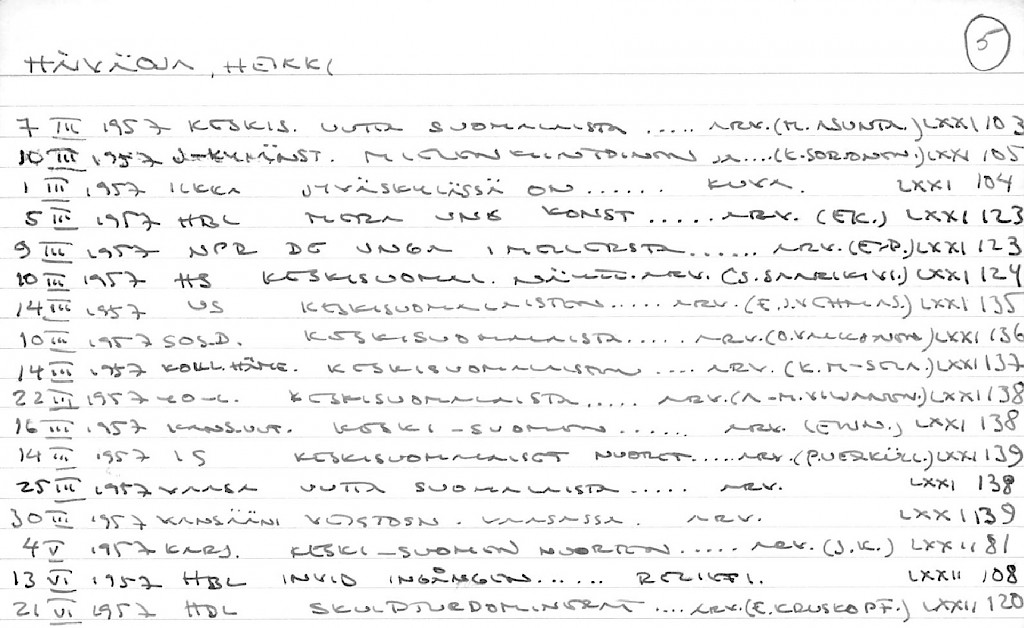 5
HÄIVÄOJA, HEIKKI
7 III 1957 KESKIS. UUTTA SUOMALAISTA ..... ARV. (M. ASUNTA.) LXXI 103
10 III 1957 MIELENKIINTOINEN JA.... (K. SORONEN.) LXXI 105
1 III 1957 ILKKA JYVÄSKYLÄSSÄ ON ...... KUVA. LXXI 104
5 III 1957 HBL MERA UNG KONST ..... ARV. (EK.) LXXI 123
9 III 1957 NPR DE UNGA I MELLERSTA ...... ARV. LXXI 123
10 III 1957 HS KESKISUOMAL. ARV. (S. SAARIKIVI.) LXXI 124
14 III 1957 US KESKISUOMALAISTEN ..... ARV. (E.J. VEHMAS.) LXXI 135
10 III 1957 SOS.D. KESKISUOMALAISTA ..... ARV. (O. VALKONEN) LXXI 136
14 III 1957 KOKK. HÄME. KESKISUOMALAISTEN ..... ARV. LXXI 137
22 III 1957 KESKISUOMALAISTA ..... ARV. LXXI 138
16 III 1957 KANS.UUT. KESKI-SUOMEN ...... ARV. LXXI 138
14 III 1957 IS KESKISUOMALAISET NUORET ..... ARV. LXXI 139
25 III 1957 VAASA UUTTA SUOMALAISTA ..... ARV. LXXI 138
30 III 1957 KANSAN ÄÄNI VEISTOSN. VAASASSA. ARV. LXXI 139
4 V 1957 KARJ. KESKI-SUOMEN NUORTEN ..... ARV. (J.K.) LXXII 81
13 VI 1957 HBL INVID INGÅNGEN ...... RELIEFI. LXXII 108
21 VI 1957 HBL SKULPTURDOMINERAT .... ARV. (E. KRUSKOPF.) LXXII 120